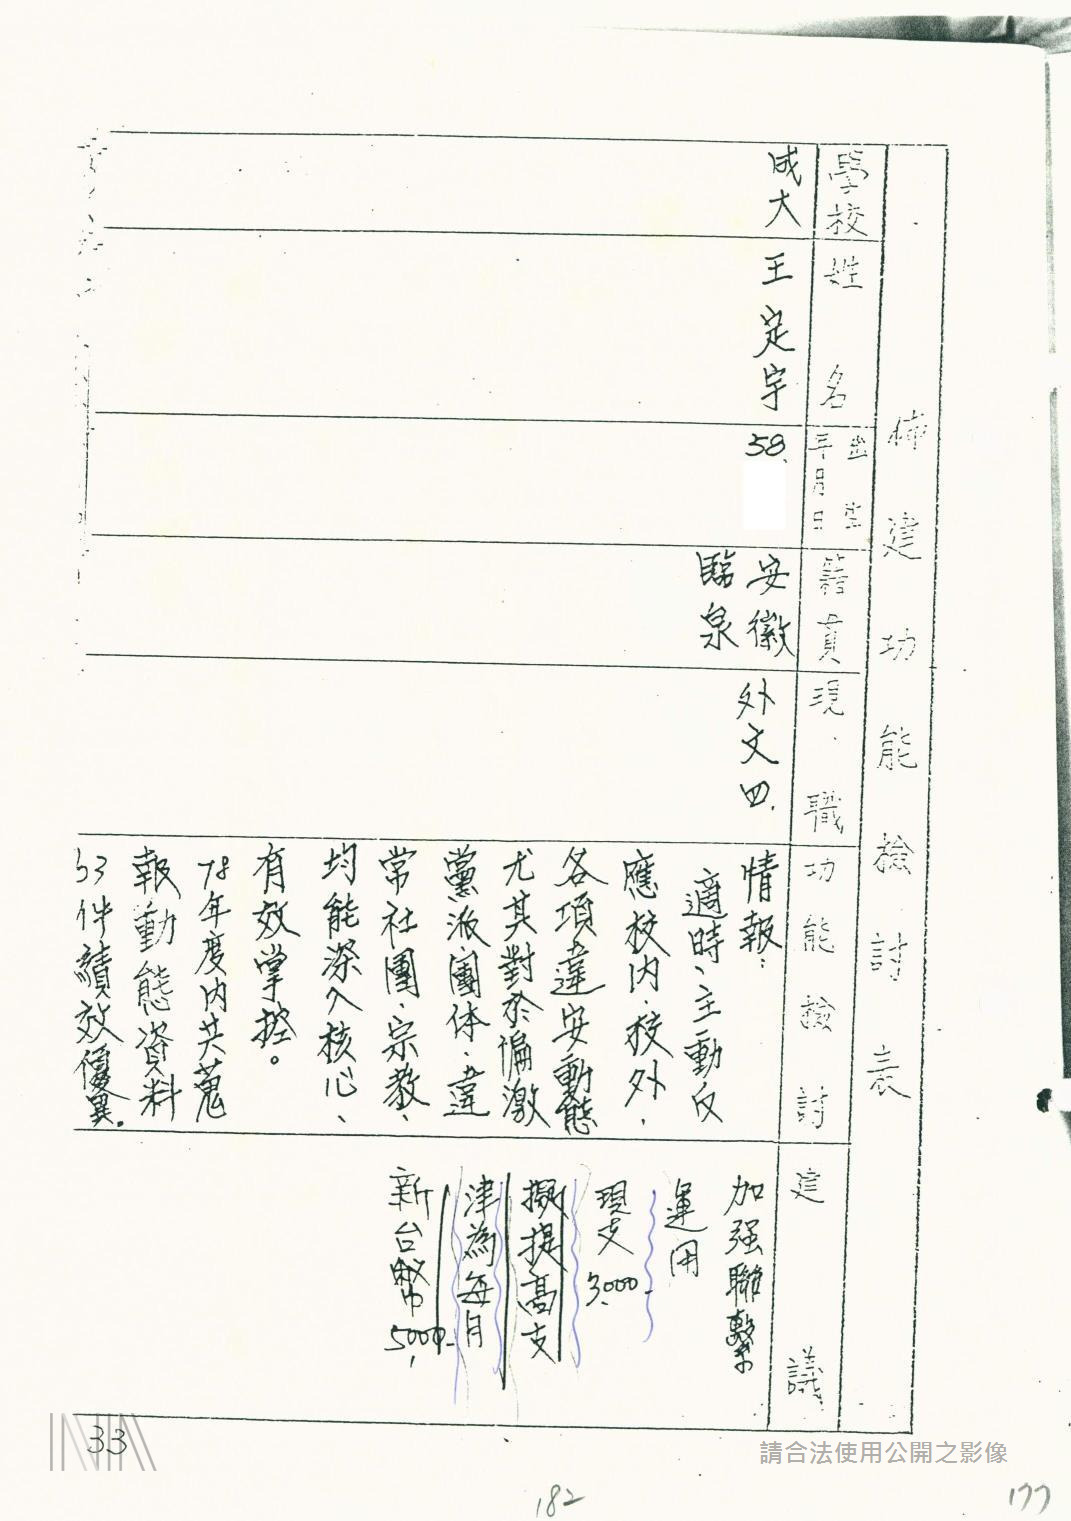 佈建功能檢討表
學校
姓名
出生
年月日
籍貫
現職
功能檢討
建議
成大
王定宇
58.
安徽
臨泉
外文四.
情報：
適時、主動反
應校內、校外、
各項違安動態
尤其對於偏激
黨派團体、違
常社團、宗教、
均能深入核心、
有效掌控。
78年度內共蒐
報動態資料
33件績效優異.
加强聯繫
運用
現支3,000-
擬提高支
津為每月
新台幣5,000-
33
182
177
請合法使用公開之影像